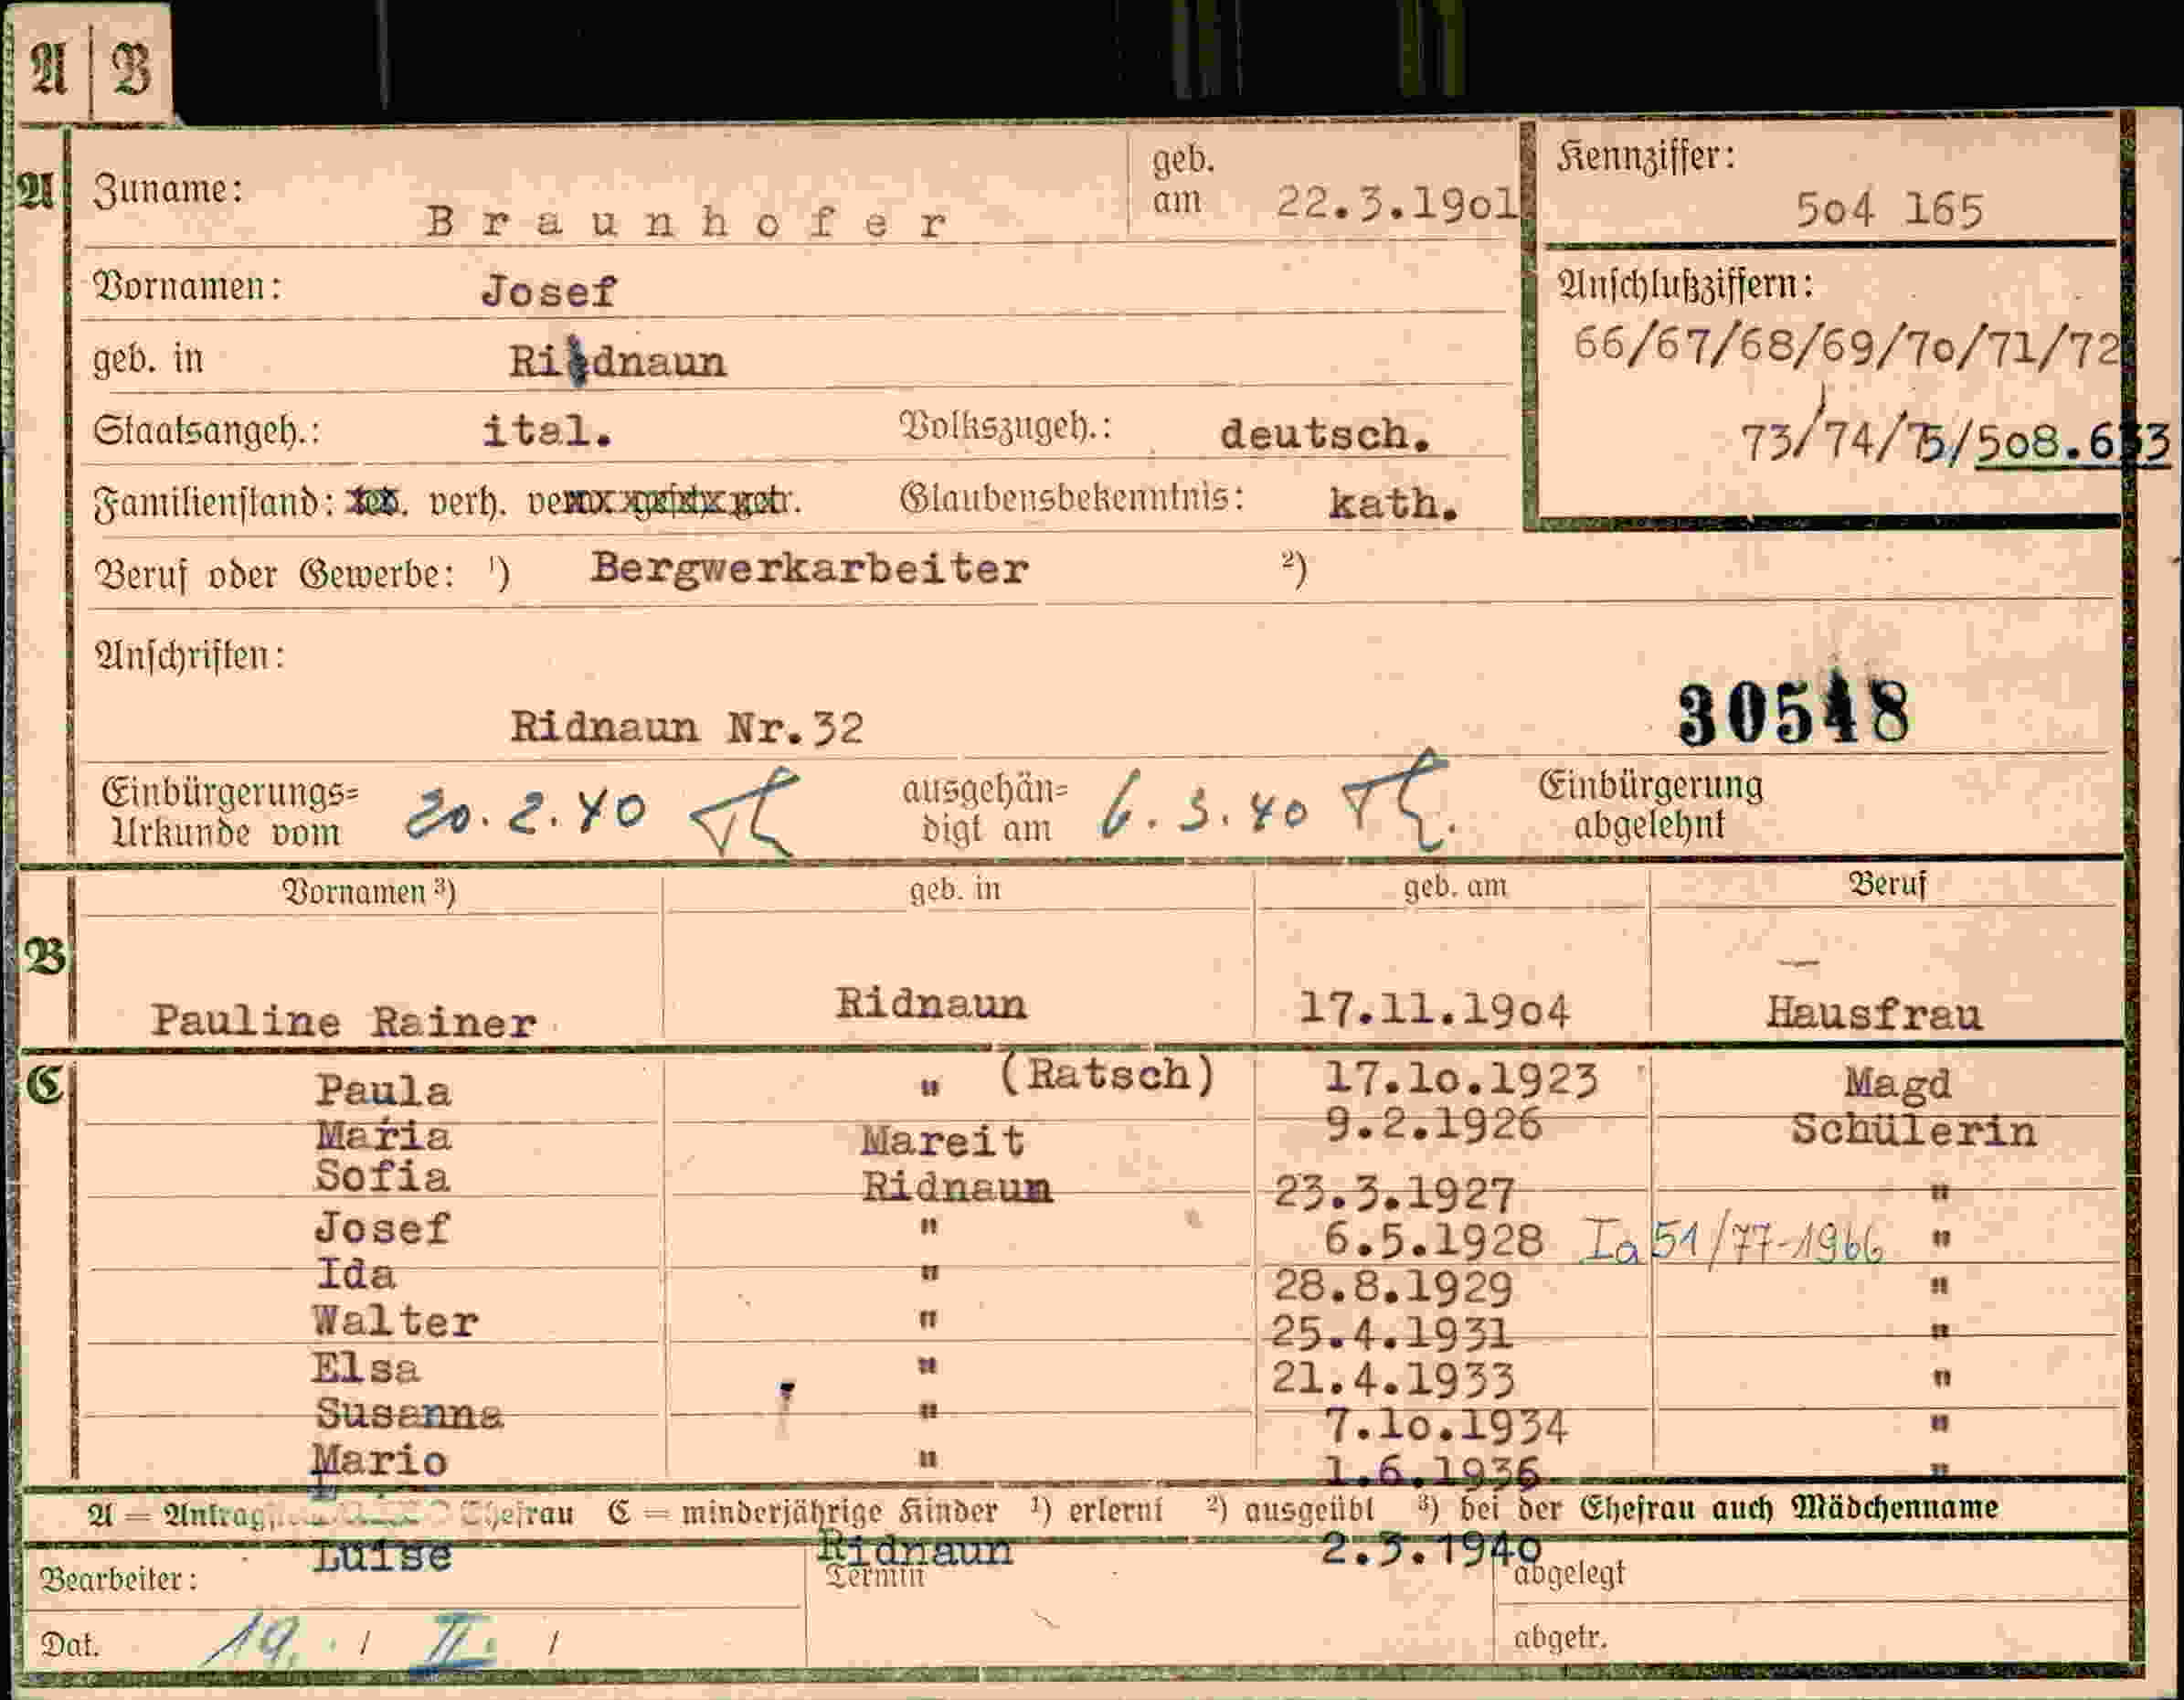 A | B
A Zuname: Braunhofer geb. am 22.3.19o1 Kennziffer: 5o4 165
Vornamen: Josef Anschlußziffern:
66/67/68/69/7o/71/72
geb. in Ridnaun
73/74/75/5o8.633
Staatsangeh.: ital. Volkszugeh.: deutsch.
Familienstand: verh. Glaubensbekenntnis: kath.
Beruf oder Gewerbe: 1) Bergwerkarbeiter 2)
Anschriften:
Ridnaun Nr.32 30548
Einbürgerungs= Urkunde vom 20.2.40 ausgehän= digt am 6.3.40 Einbürgerung abgelehnt
Vornamen 3) geb. in geb. am Beruf
B
Pauline Rainer Ridnaun 17.11.19o4 Hausfrau
C Paula " (Ratsch) 17.1o.1923 Magd
Maria Mareit 9.2.1926 Schülerin
Sofia Ridnaun 23.3.1927 "
Josef " 6.5.1928 Ia 51/77-1966 "
Ida " 28.8.1929 "
Walter " 25.4.1931 "
Elsa " 21.4.1933 "
Susanna " 7.1o.1934 "
Mario " 1.6.1936 "
A = Antrag Ehefrau C = minderjährige Kinder 1) erlernt 2) ausgeübt 3) bei der Ehefrau auch Mädchenname
Luise Ridnaun 2.3.194o
Bearbeiter: Termin abgelegt
Dat. 19. / II. / abgetr.